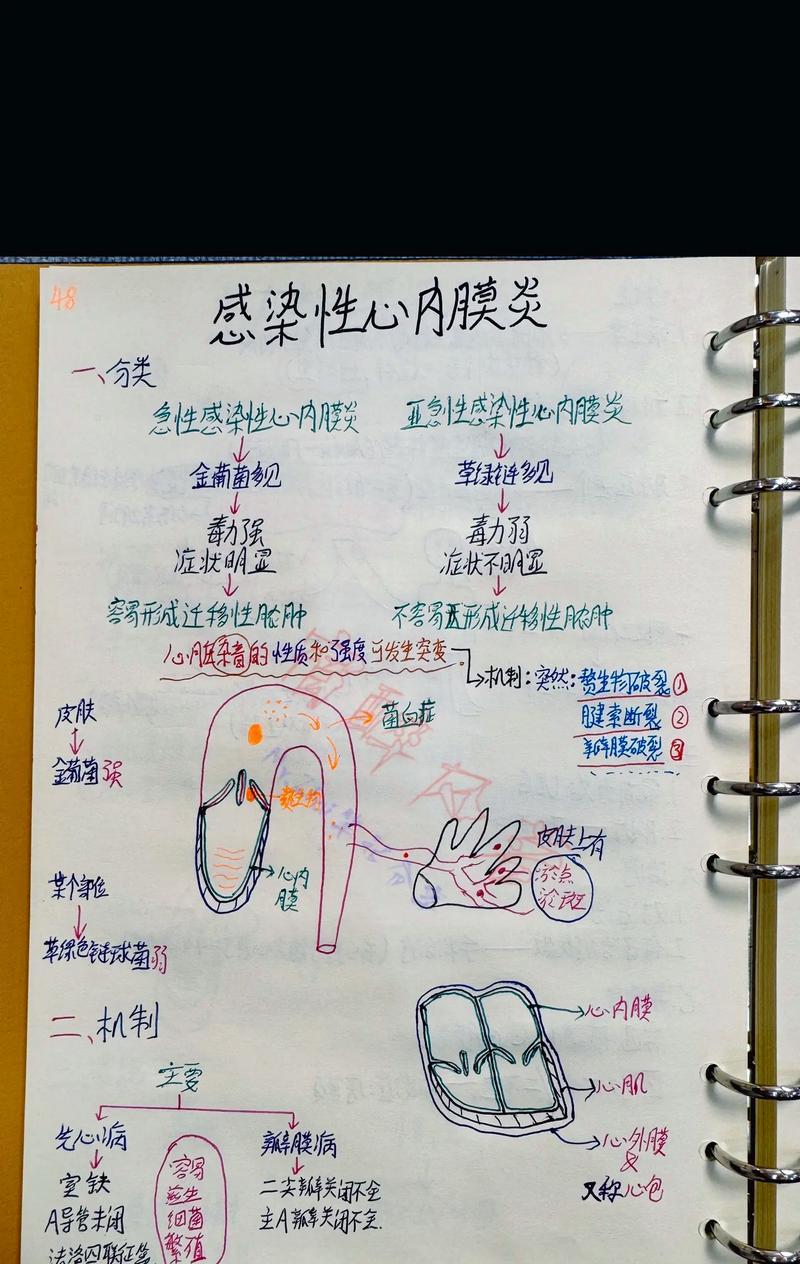 48
感染性心内膜炎
一、分类
急性感染性心内膜炎
亚急性感染性心内膜炎
金葡菌多见
草绿链多见
毒力强
症状明显
毒力弱
症状不明显
容易形成迁移性脓肿
不容易形成迁移性脓肿
心脏杂音的性质和强度可发生突变
机制:突然:赘生物破裂①
腱索断裂②
瓣膜破裂③
皮肤
金葡菌强
菌血症
赘生物
心内
膜
皮肤上有
瘀点
瘀斑
某个部位
草绿色链球菌弱
二、机制
心内膜
心肌
心外膜
又称心包
主要
先心病
室缺
A导管未闭
法洛四联征等
容易
滋生
细菌
繁殖
瓣膜病
二尖瓣关闭不全
主A瓣关闭不全.